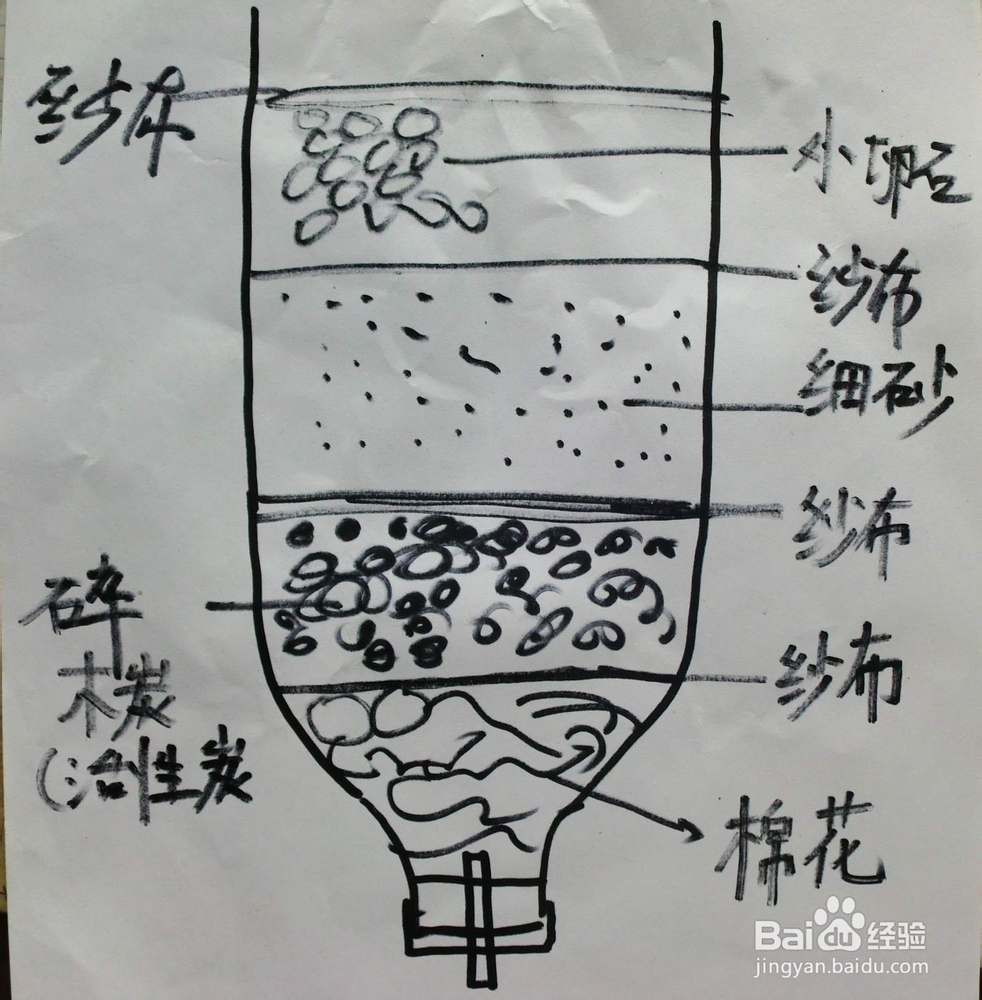 纱布
小卵石
纱布
细石砂
纱布
碎
木炭
(活性炭
纱布
棉花
Bai du 经验
jingyan.baidu.com